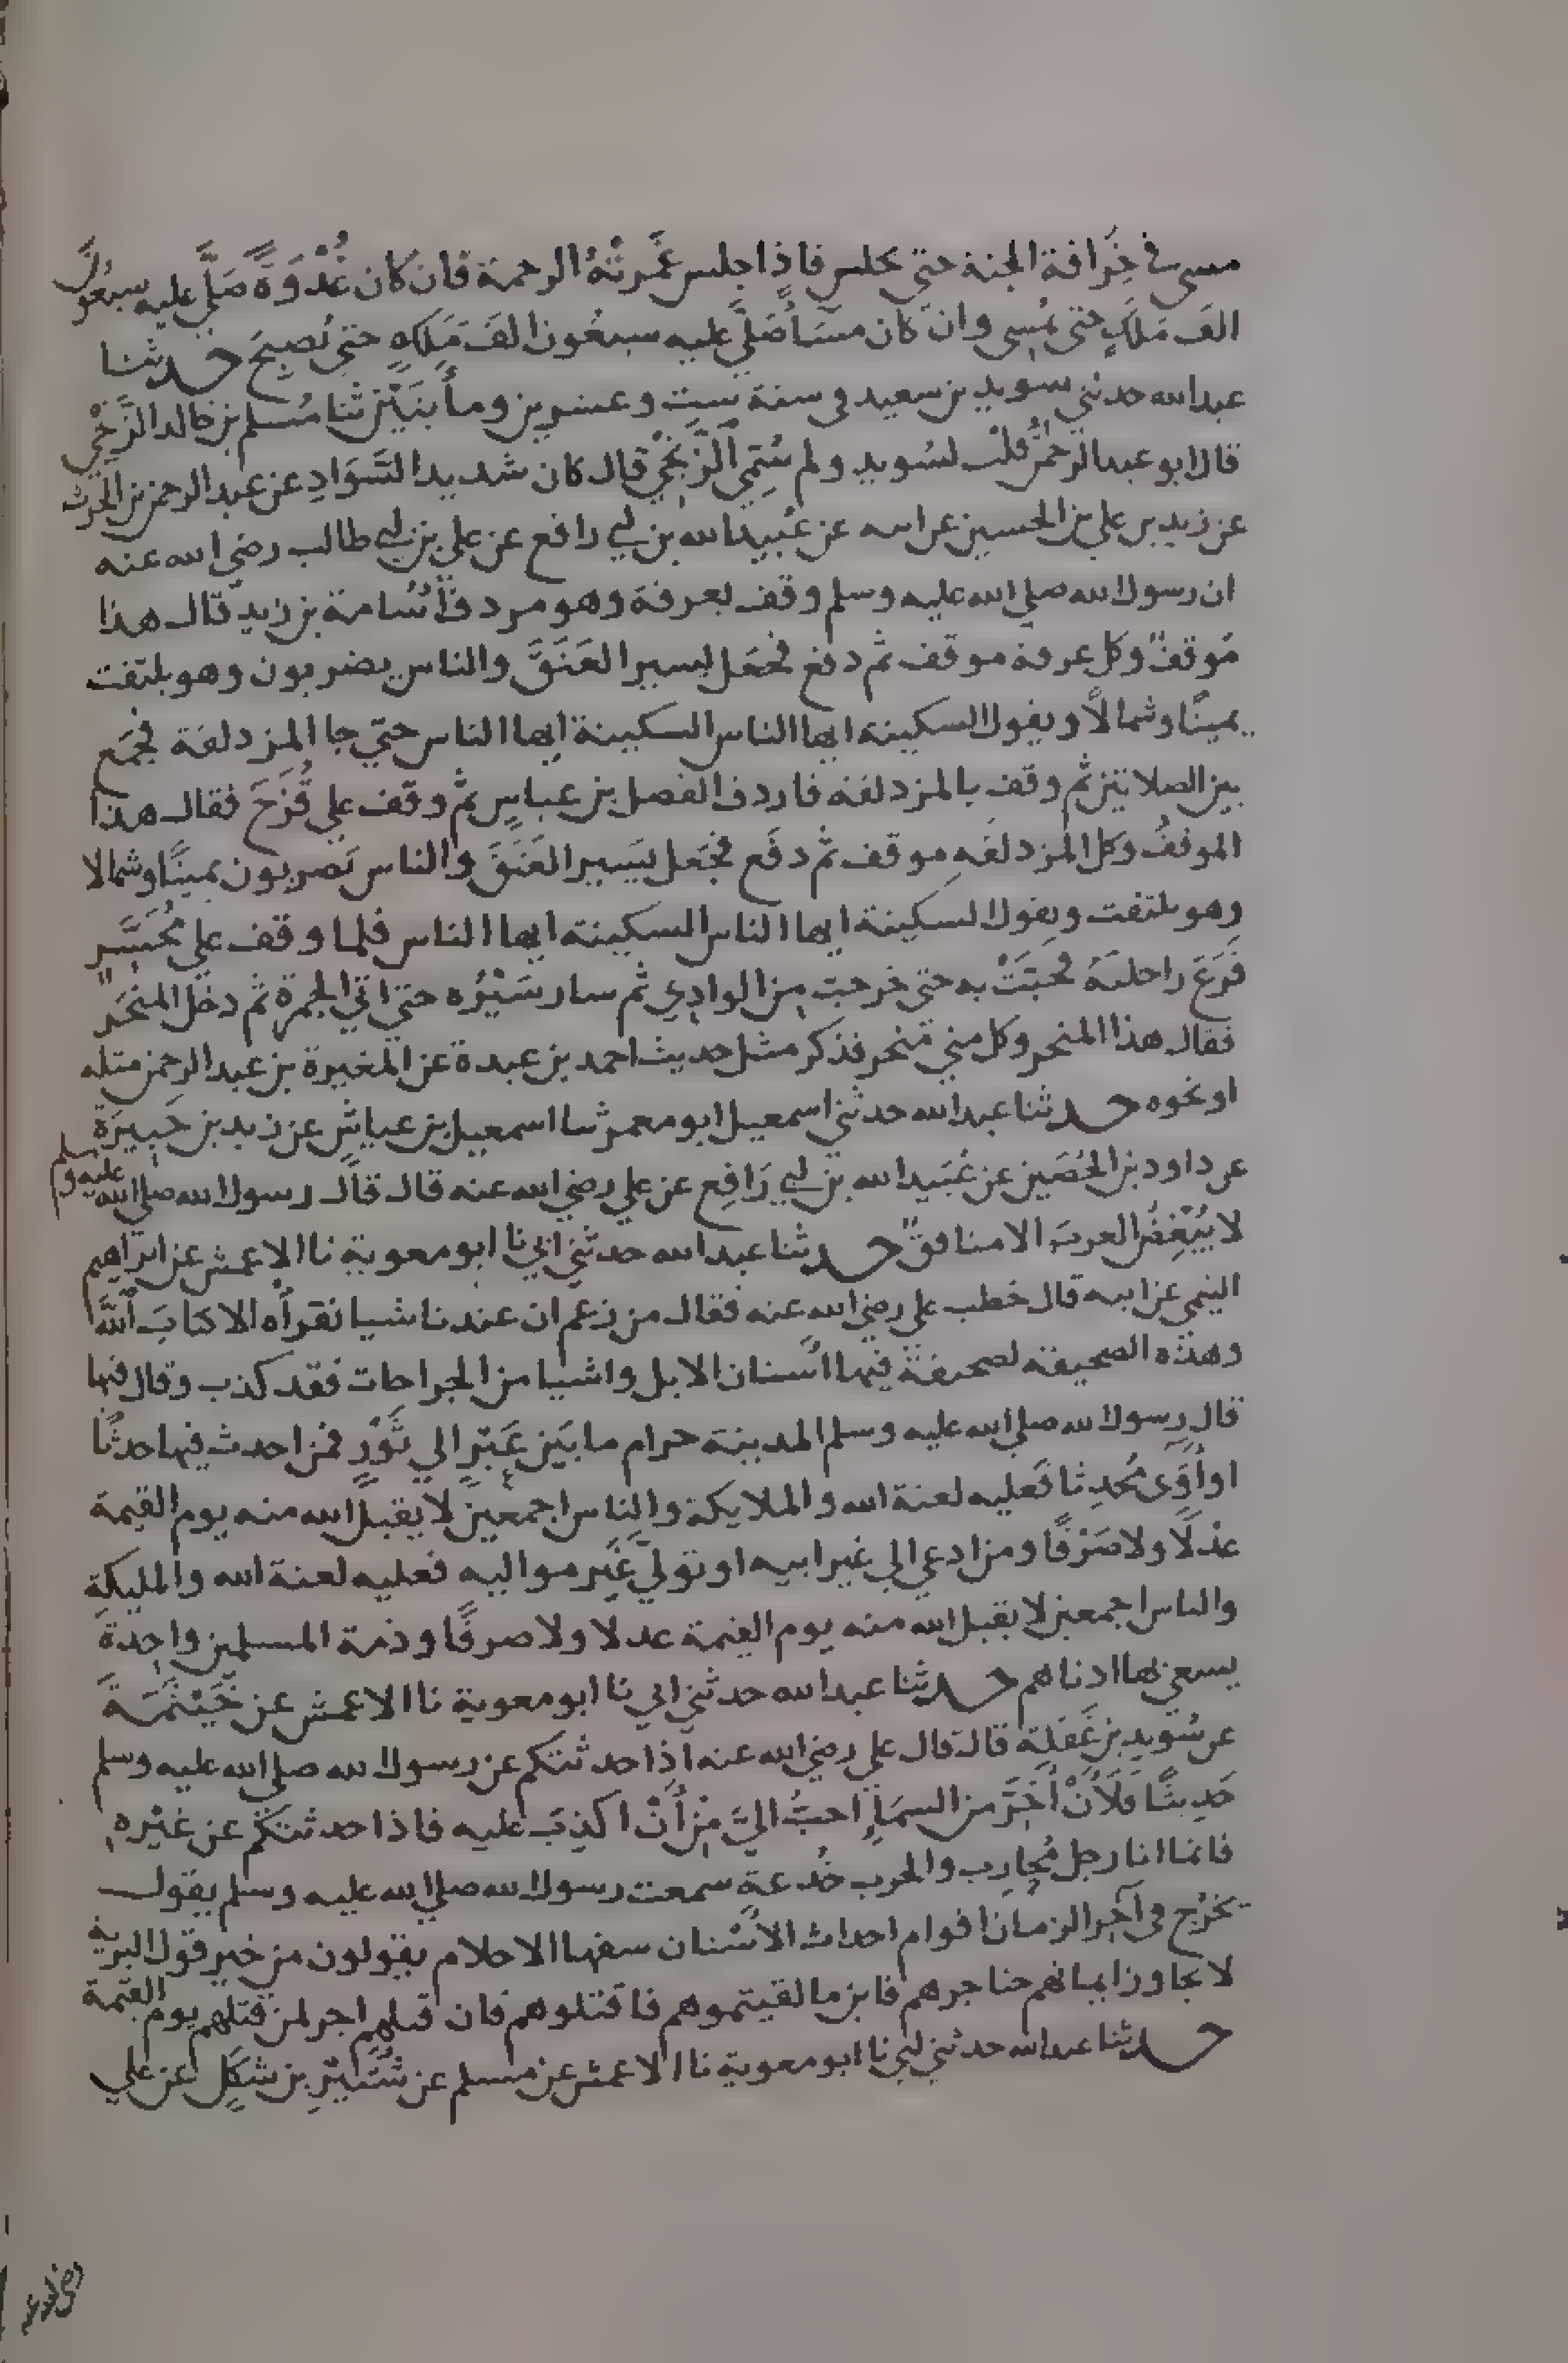 مسى في خِرَافة الجنة حتى يجلس فاذا جلس غَمَرتْهُ الرحمة فان كان غُدْوَةً صَلَّى عليه سبعون
الفَ مَلَكٍ حتى يُمسى وان كان مسَاً صَلَّى عليه سبعُون الفَ مَلَكٍ حتى يُصبحَ حدثنا
عبدالله حدثني سويد بن سعيد في سنة سِت وعشرين ومأتَيْن ثنا مُسلم بن خالد الزَّنْجي
قال ابو عبد الرحمن قلت لسُويد ولم سُمِّي الزَّنْجي قال كان شديد السَّوَادِ عن عبد الرحمن بن الحرث
عن زيد بن علي بن الحسين عن ابيه عن عُبيدالله بن ابي رافع عن علي بن ابي طالب رضي الله عنه
ان رسول الله صلي الله عليه وسلم وقف بعرفة وهو مردفٌ أُسَامة بن زيد قال هذا
مَوقفٌ وكل عرفة موقف ثم دفع فجعَل يسير العَنَقَ والناس يضربون وهو يلتفت
يمينًا وشمالاً ويقول السكينة ايها الناس السكينة ايها الناس حتي جا المزدلفة فجمَع
بين الصلاتين ثم وقف بالمزدلفة فاردف الفضل بن عباسٍ ثم وقف علي قُزَحَ فقال هذا
الموقفُ وكل المزدلفهِ موقف ثم دفَع فجعَل يَسير العَنَقَ والناس يَضربون يمينًا وشمالا
وهو يلتفت ويقول السكينة ايها الناس السكينة ايها الناس فلما وقف علي مُحَسِّرٍ
قَرَعَ راحلتَهُ فخبَّتْ به حتى خرجت مِن الوادِي ثم سار سَيْرَه حتي اتي الجمرة ثم دخل المنحَر
فقال هذا المنحر وكل مني مَنحر فذكر مثل حديث احمد بن عبدة عن المغيرة بن عبد الرحمن مثله
او نحوه حدثنا عبدالله حدثني اسمعيل ابو معمر ثنا اسمعيل بن عياشٍ عن زيد بن جَبيرَة
عن داود بن الحُصَين عن عُبَيدالله بن ابي رَافِع عن علي رضي الله عنه قال قال رسول الله صلي الله عليه وسلم
لا يُبْغِضُ العربَ الا منافقٌ حدثنا عبدالله حدثني ابي نا ابو معوية نا الاعمش عن ابراهيم
التيمي عن ابيه قال خطب علي رضي الله عنه فقال من زعم ان عندنا شيا نقرأه الا كتابَ الله
وهذه الصحيفة لصحيفة فيها اسنان الابل واشيا من الجراحات فقد كذب وقال فيها
قال رسول الله صلي الله عليه وسلم المدينة حرام ما بَين عَيْرٍ الي ثَوْرٍ فمن احدث فيها حدثًا
او أوَى مُحدِثا فعليه لعنة الله والملايكة والناس اجمعين لا يقبل الله منه يوم القيمة
عدْلًا ولا صَرْفًا ومن ادعي الي غير ابيه او تولي غَير مواليه فعليه لعنة الله والمليكة
والناس اجمعين لا يقبل الله منه يوم القيمة عدلا ولا صرفًا وذمة المسلمين واحدة
يسعي بها ادناهم حدثنا عبدالله حدثني ابي نا ابو معوية نا الاعمش عن خَيْثَمَةَ
عن سُويد بن غَفَلة قال قال علي رضي الله عنه اذا حدثتكم عن رسول الله صلي الله عليه وسلم
حَديثًا فلَأنْ أخِرَّ من السمَاءِ احبُّ اليَّ مِنْ أنْ اكذِبَ عليه فاذا حدثتكم عن غيْره
فانما انا رجل مُحارِب والحرب خُدعة سمعت رسول الله صلي الله عليه وسلم يقول
يخرُج في آخِر الزمان اقوام احداث الاسْنان سفها الاحلام يقولون من خير قول البرية
لا يجاوز ايمانهم حناجرهم فاين ما لقيتموهم فاقتلوهم فان قتلهم اجر لمن قتلهم يوم القيمة
حدثنا عبدالله حدثني ابي نا ابو معوية نا الاعمش عن مسلم عن شُتَيْرِ بن شكَلٍ عن علي